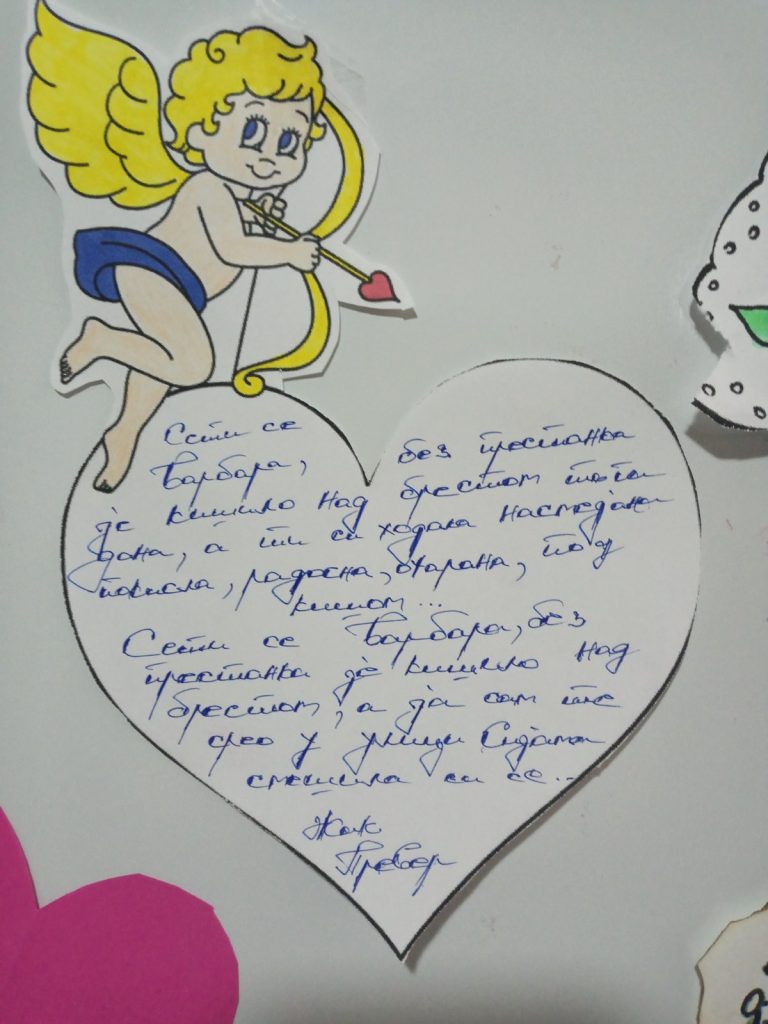 Сети се
Варбара, без престанка
је кишило над брестом тога
дана, а ти си ходала насмејана
покисла, радосна, озарана, под
кишом...
Сети се Варбара, без
престанка је кишило над
брестом, а ја сам те
срео у улици Сијама
смешила си се...
Жак
Превер